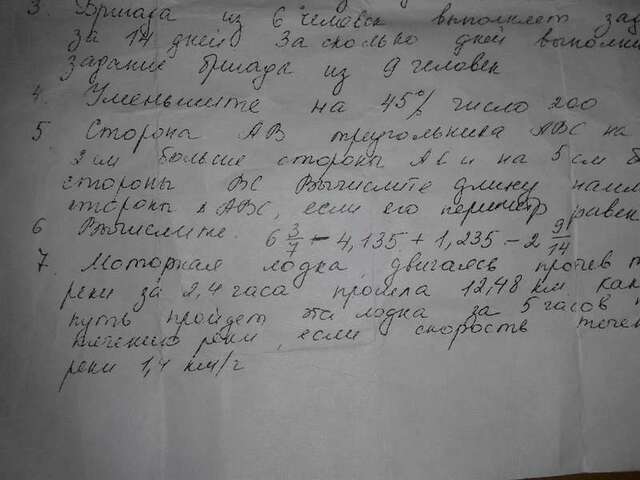 3. Бригада из 6 человек выполняет
за 14 дней. За сколько дней
задание бригада из 9 человек
4. Уменьшите на 45% число 200
5 Сторона AB треугольника ABC на
2 см больше стороны AC и на 5 см
стороны BC Вычислите длину
стороны ABC, если его периметр равен
6 Вычислите. 6 3/7 - 4,135 + 1,235 - 2 9/14
7. Моторная лодка, двигаясь против
реки за 2,4 часа прошла 12,48 км. Как
путь пройдет эта лодка за 5 часов
течению реки, если скорость
реки 1,4 км/г